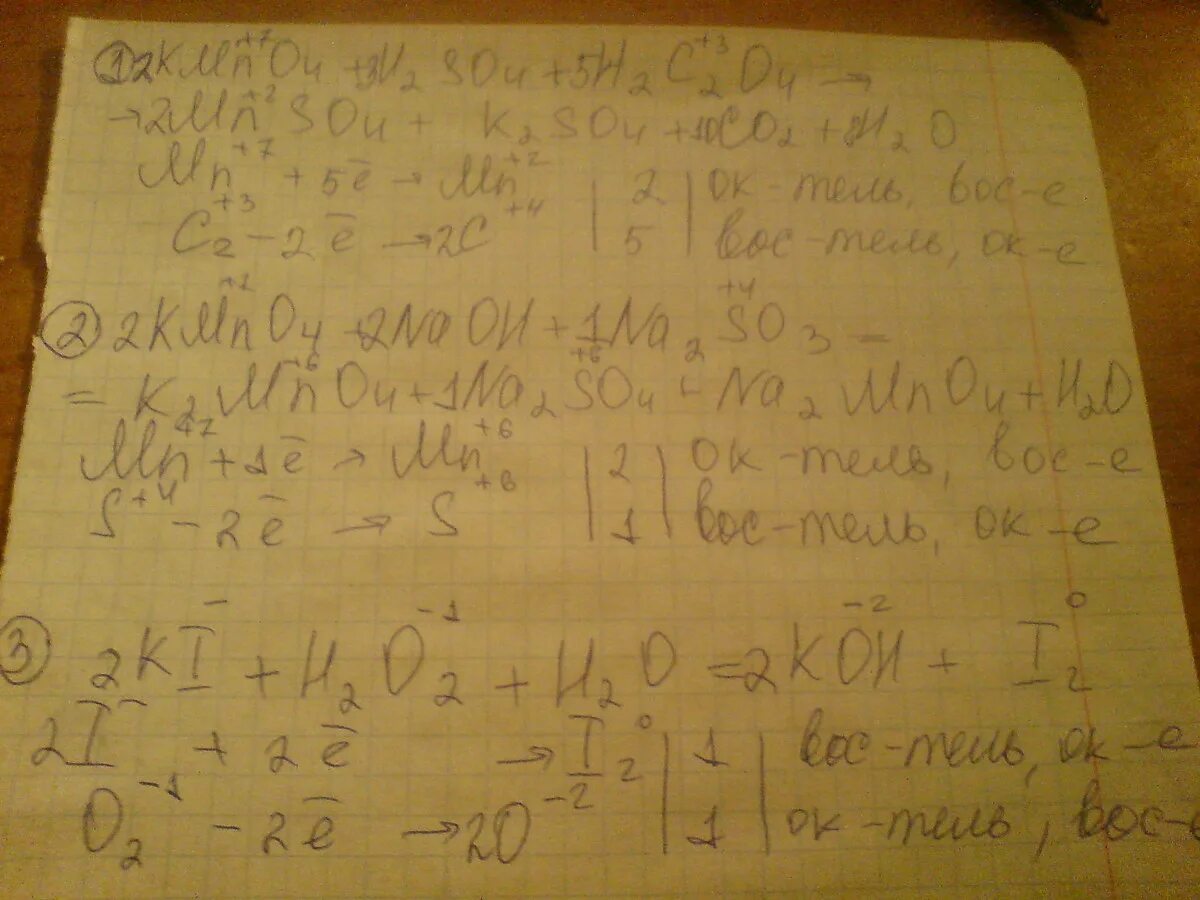 ① 2KMn⁺⁷O₄ + 3H₂SO₄ + 5H₂C₂⁺³O₄ →
→ 2Mn⁺²SO₄ + K₂SO₄ + 10CO₂ + 8H₂O
Mn⁺⁷ + 5ē → Mn⁺² | 2 | ок-тель, вос-е
C₂⁺³ - 2ē → 2C⁺⁴ | 5 | вос-тель, ок-е
② 2KMn⁺⁷O₄ + 2NaOH + 1Na₂S⁺⁴O₃ =
= K₂Mn⁺⁶O₄ + 1Na₂S⁺⁶O₄ + Na₂MnO₄ + H₂O
Mn⁺⁷ + 1ē → Mn⁺⁶ | 2 | ок-тель, вос-е
S⁺⁴ - 2ē → S⁺⁶ | 1 | вос-тель, ок-е
③ 2KI⁻ + H₂O₂⁻¹ + H₂O = 2KO⁻²H + I₂⁰
2I⁻ + 2ē → I₂⁰ | 1 | вос-тель, ок-е
O₂⁻¹ - 2ē → 2O⁻² | 1 | ок-тель, вос-е